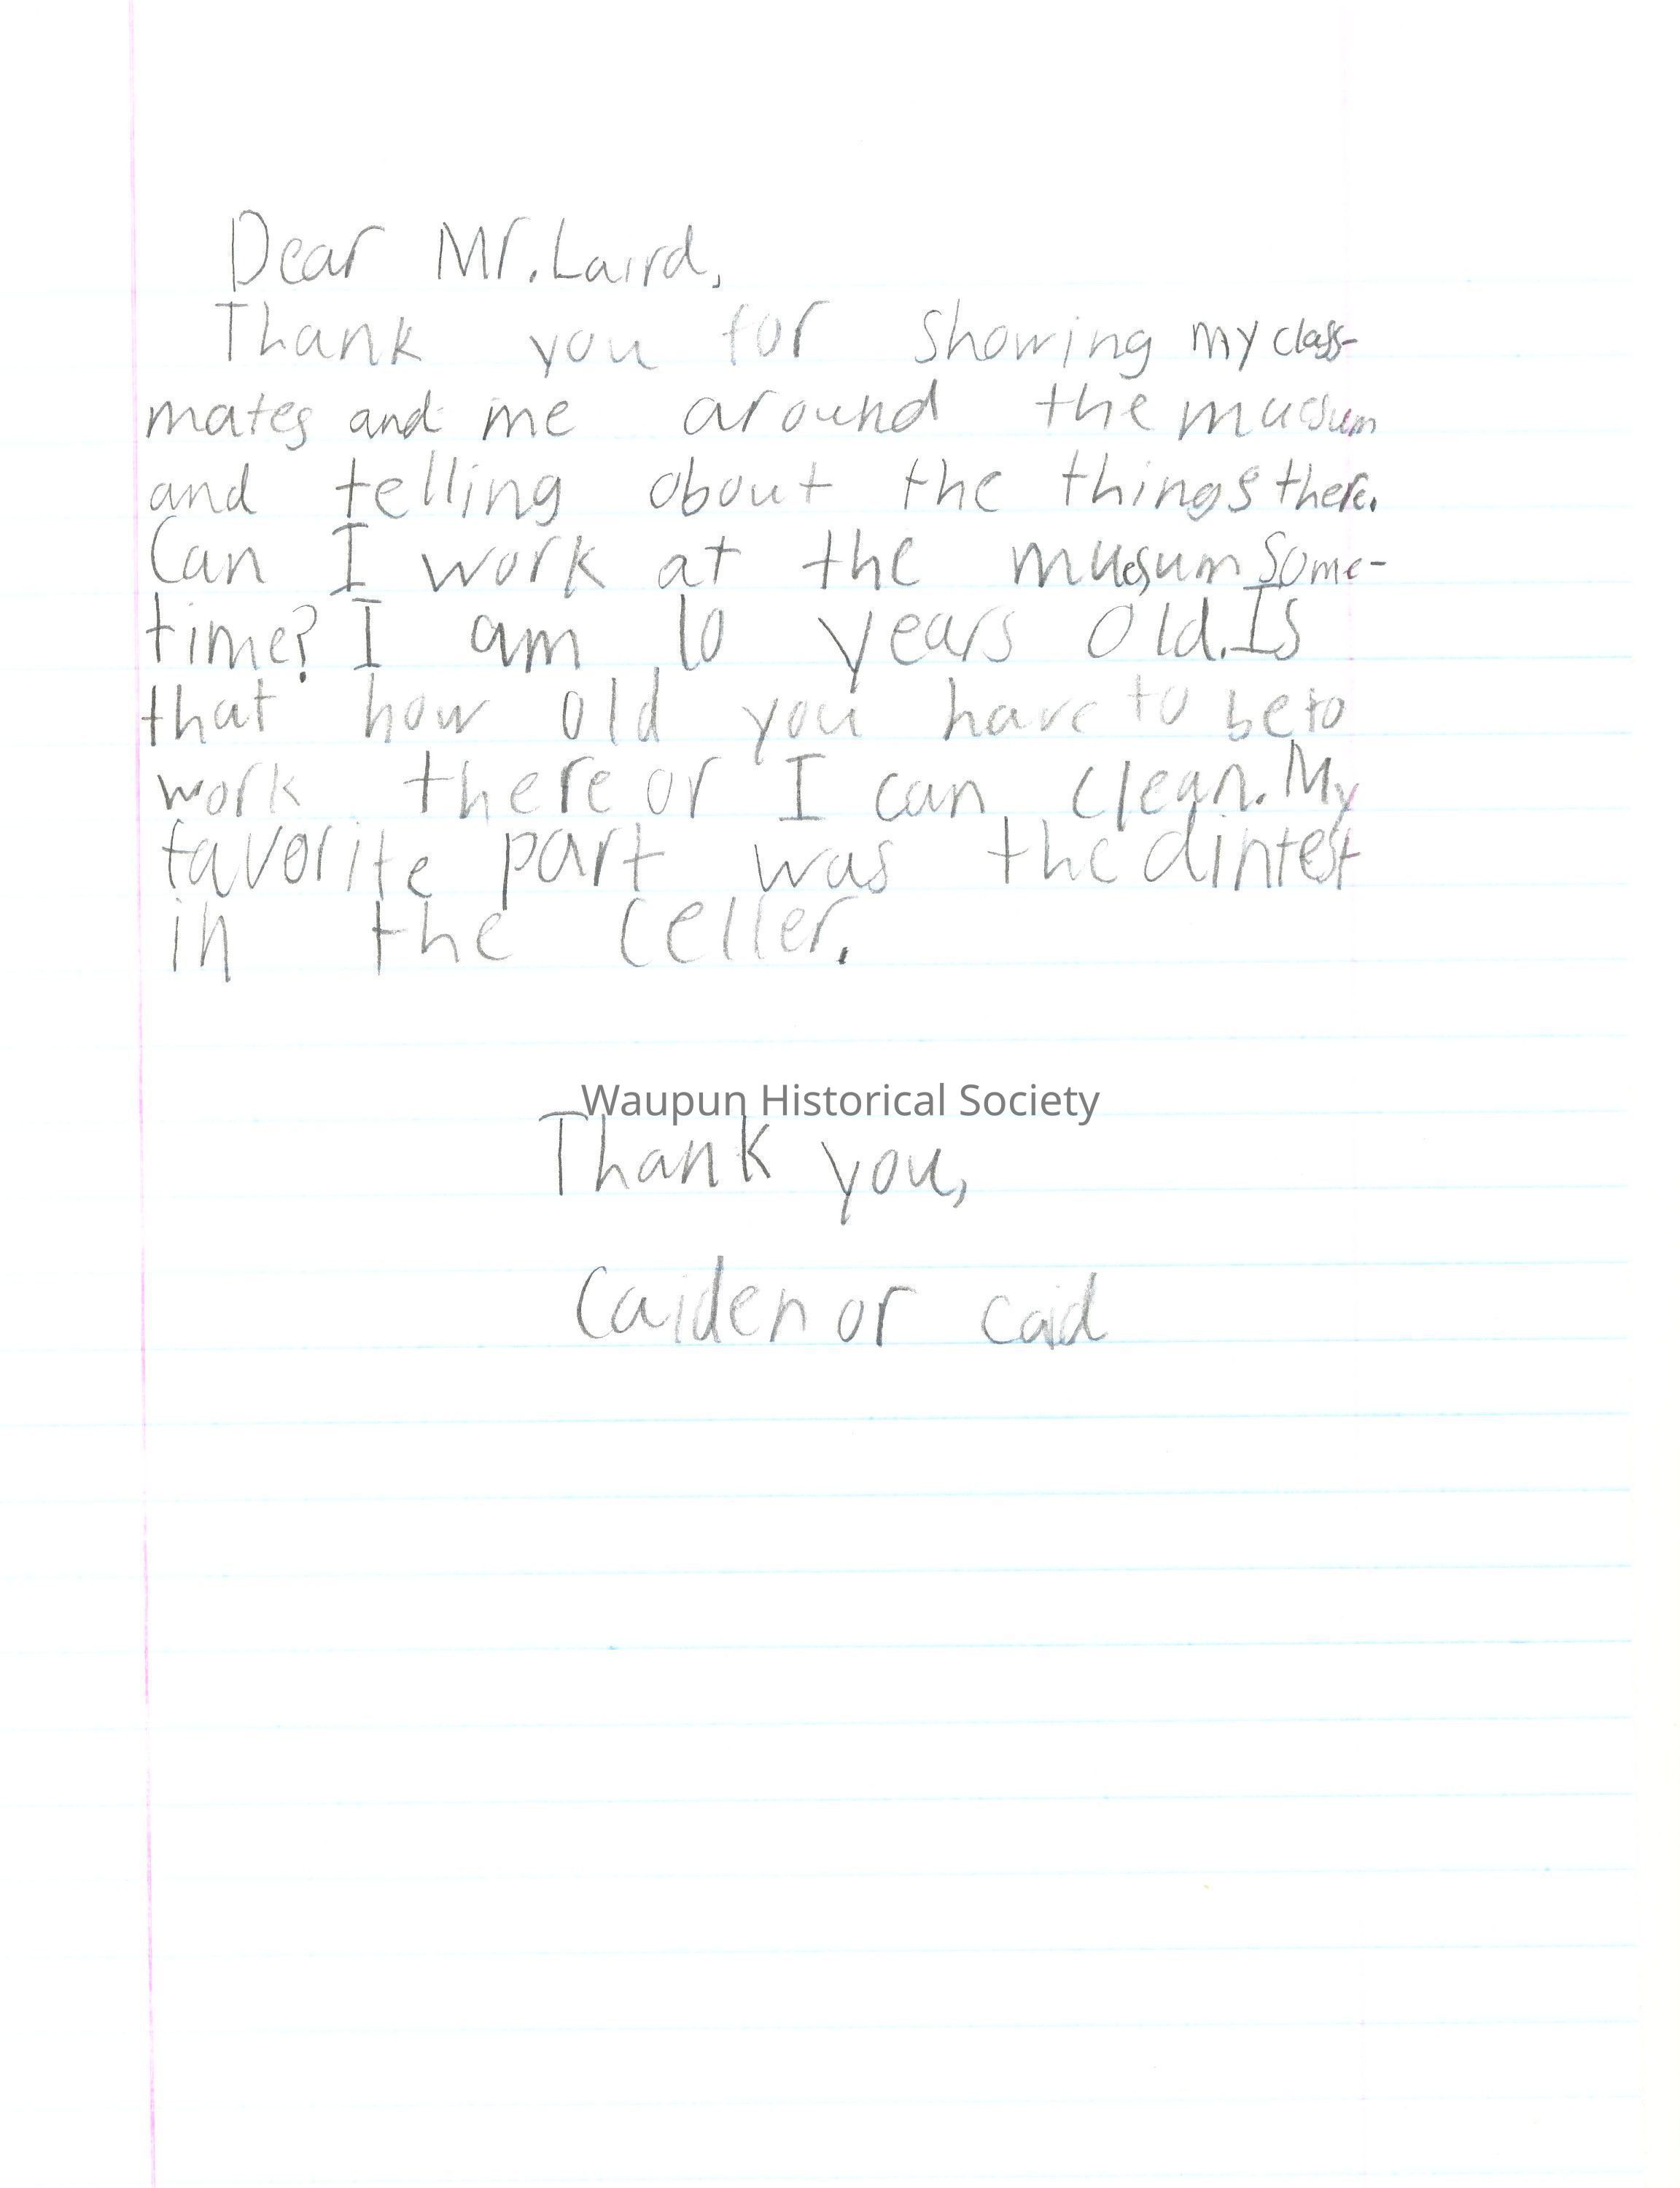 Dear Mr. Laird,
Thank you for showing my class-
mates and me around the
and telling about the things there.
Can I work at the muesum some-
time? I am 10 years old. Is
that how old you have to be to
work there or I can clean. My
favorite part was the dintest
in the celler.
Waupun Historical Society
Thank you,
Caiden or caid